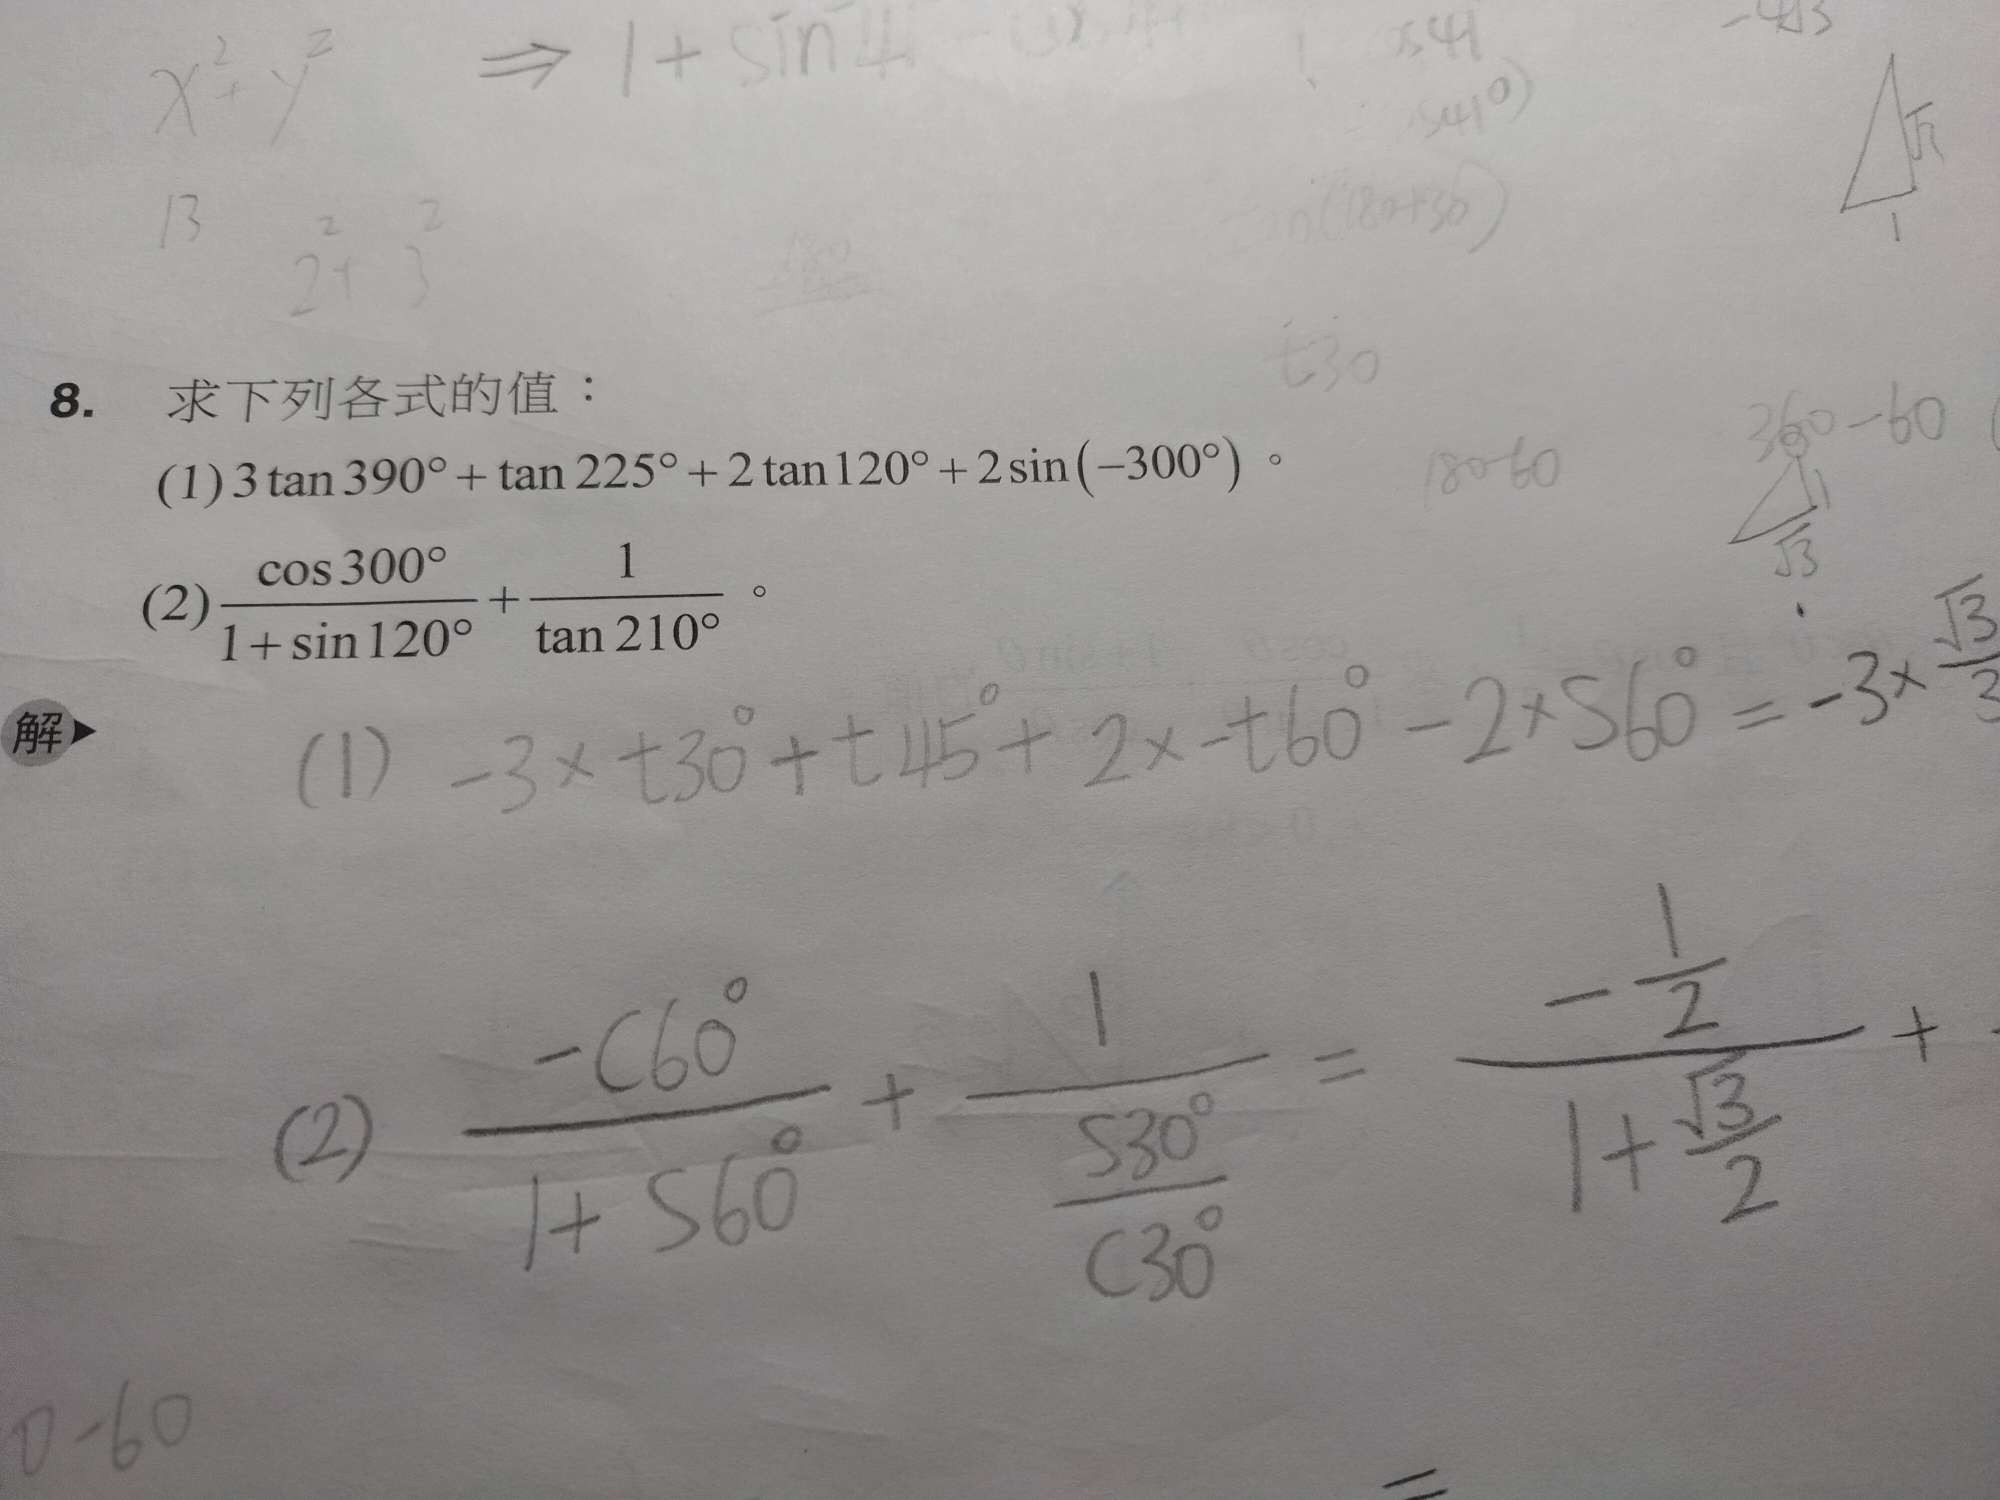 x² + y² ⇒ 1 + sin 4
s41 -4√3
s41°)
13 2² + 3² (180+30) 1
t30
8. 求下列各式的值：
360-60
(1) 3 tan 390° + tan 225° + 2 tan 120° + 2 sin (−300°)。 180-60
√3
(2) cos 300° / (1 + sin 120°) + 1 / tan 210° 。
解▶ (1) -3 × t30° + t45° + 2 × -t60° - 2 × S60° = -3 × √3/3
(2) -C60° / (1 + S60°) + 1 / (S30° / C30°) = -1/2 / (1 + √3/2) +
0-60
=